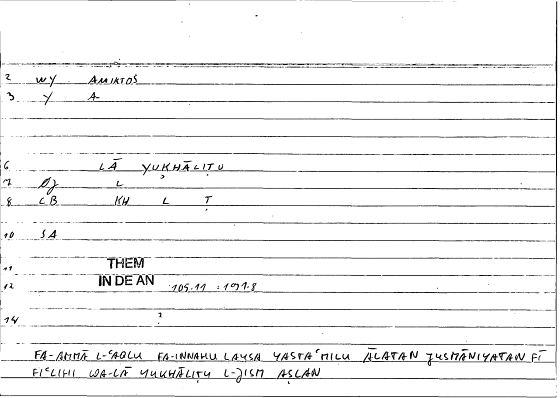 2 WY AMIKTOS
3 Y A
6 LĀ YUKHĀLIṬU
7 L
8 LB KH L Ṭ
10 SA
11 THEM
12 IN DE AN 109.11 : 1091.8
14 2
FA-AMMĀ L-ʿAQLU FA-INNAHU LAYSA YASTAʿMILU ĀLATAN JUSMĀNIYATAN FĪ
FIʿLIHI WA-LĀ YUKHĀLIṬU L-JISM AṢLAN